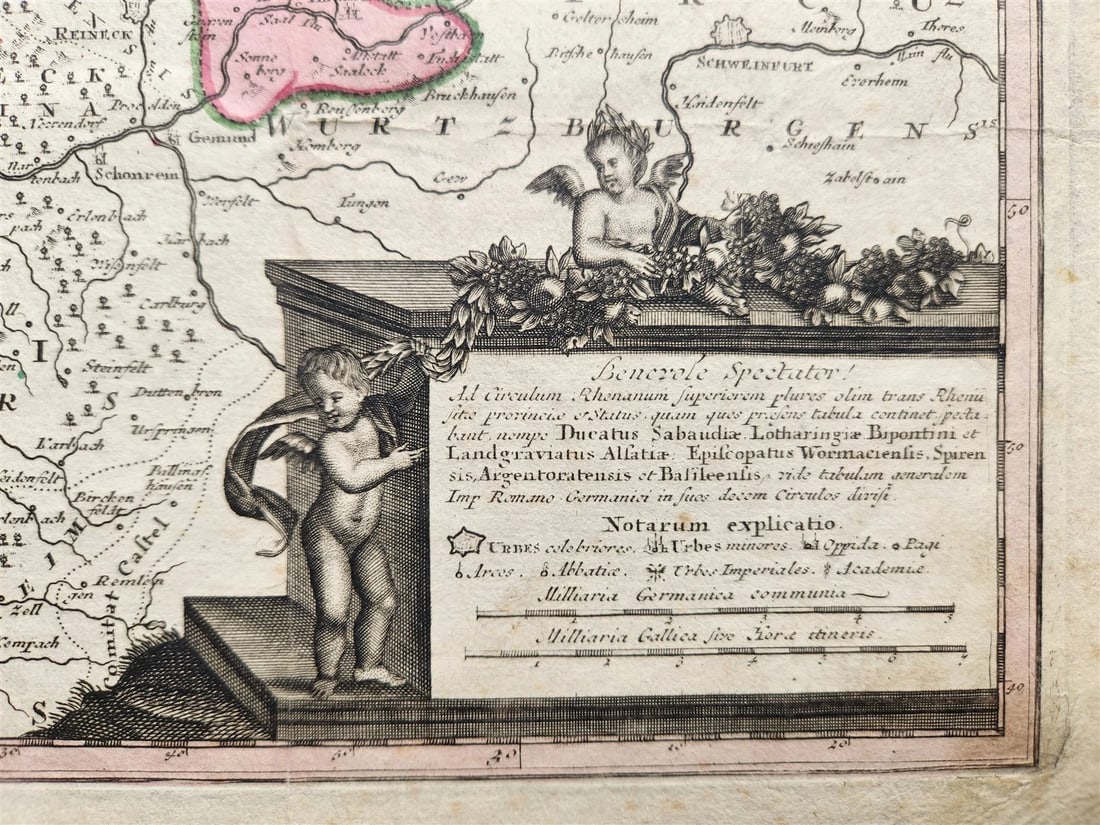 REINECK
Saal Flu
Geltersheim
Meinborg
Theres
Main flu
Vostka
Altstatt
Saaleck
Sonneberg
Bruckhausen
Reussenberg
SCHWEINFURT
Everheim
Heidenfelt
WURTZBURGENSIS
Gemund
Homberg
Schonrein
Gew
Tungen
Erlenbach
Karbach
Wisenfelt
Carlburg
Steinfelt
Duttenbron
Urspringen
Karbach
Birckenfeldt
Remlengen
Zell
Comitat Castel
50
50
40
Benevole Spectator!
Ad Circulum Rhenanum superiorem plures olim trans Rhenu
sitæ provinciæ et Status, quam quos præsens tabula continet, specta-
bant, nempe Ducatus Sabaudiæ, Lotharingiæ Bipontini et
Landgraviatus Alsatiæ, Episcopatus Wormaciensis, Spiren
sis, Argentoratensis et Basileensis, vide tabulam generalem
Imp Romano Germanici in suos decem Circulos divisi.
Notarum explicatio.
URBES celebriores. Urbes minores. Oppida. Pagi
Arces. Abbatiæ. Urbes Imperiales. Academiæ.
Milliaria Germanica communia
1 2 3 4 5
Milliaria Gallica sive Horæ itineris.
1 2 3 4 5 6 7
50 40 50 40 10 20